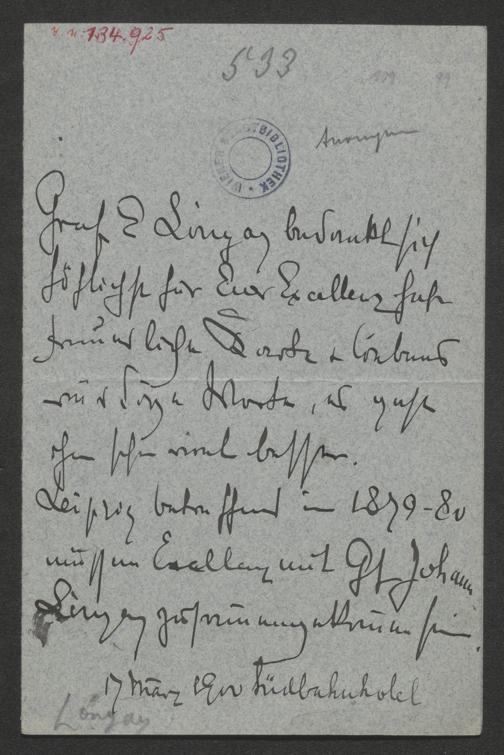 I. N. 134.925
533
WIENER STADTBIBLIOTHEK
Anonym
Graf E Lónyay bedankt sich
höflichst für Euer Excellenz sehr
freundliche Karte &
Worte, es geht
ihm schon viel besser.
Leipzig betreffend in 1879-80
müssen Excellenz mit Gf Johann
Lónyay zusammengekommen sein.
17 März 1900 Südbahnhotel
Lónyay